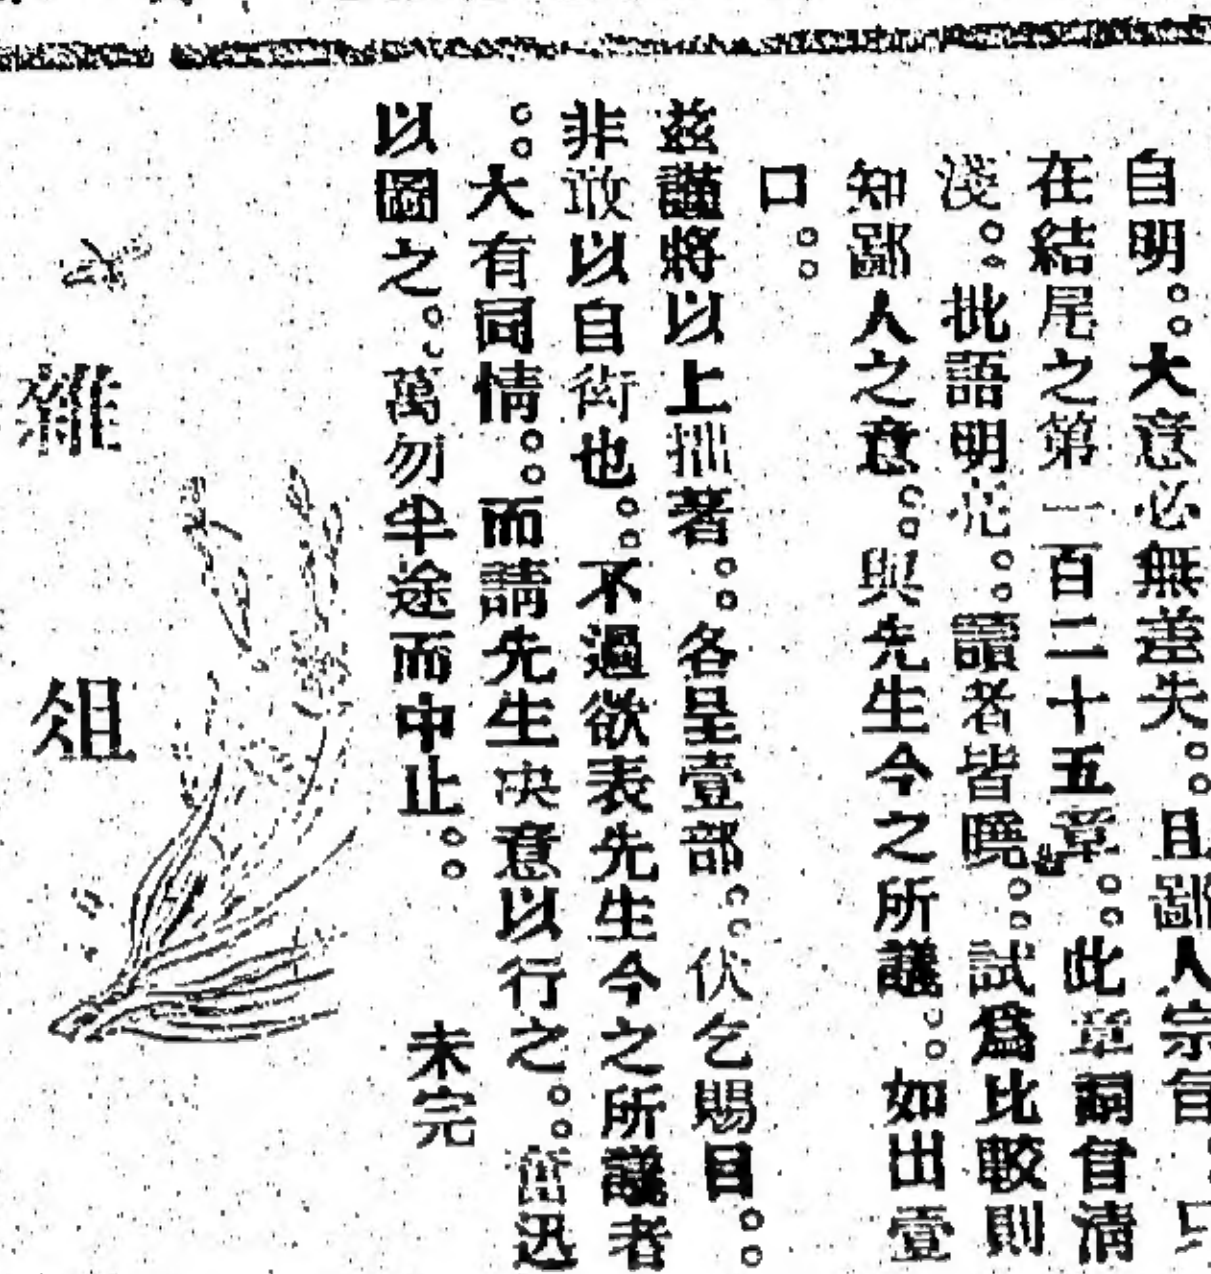 自明。大意必無差失。且鄙人宗旨
在結尾之第一百二十五章。此章詞旨清
淺。批語明亮。讀者皆曉。試爲比較則
知鄙人之意。與先生今之所議。如出壹
口。
茲謹將以上拙著。各呈壹部。伏乞賜目。
非敢以自衒也。不過欲表先生今之所議者
。大有同情。而請先生决意以行之。奮迅
以圖之。萬勿半途而中止。 未完
雜俎